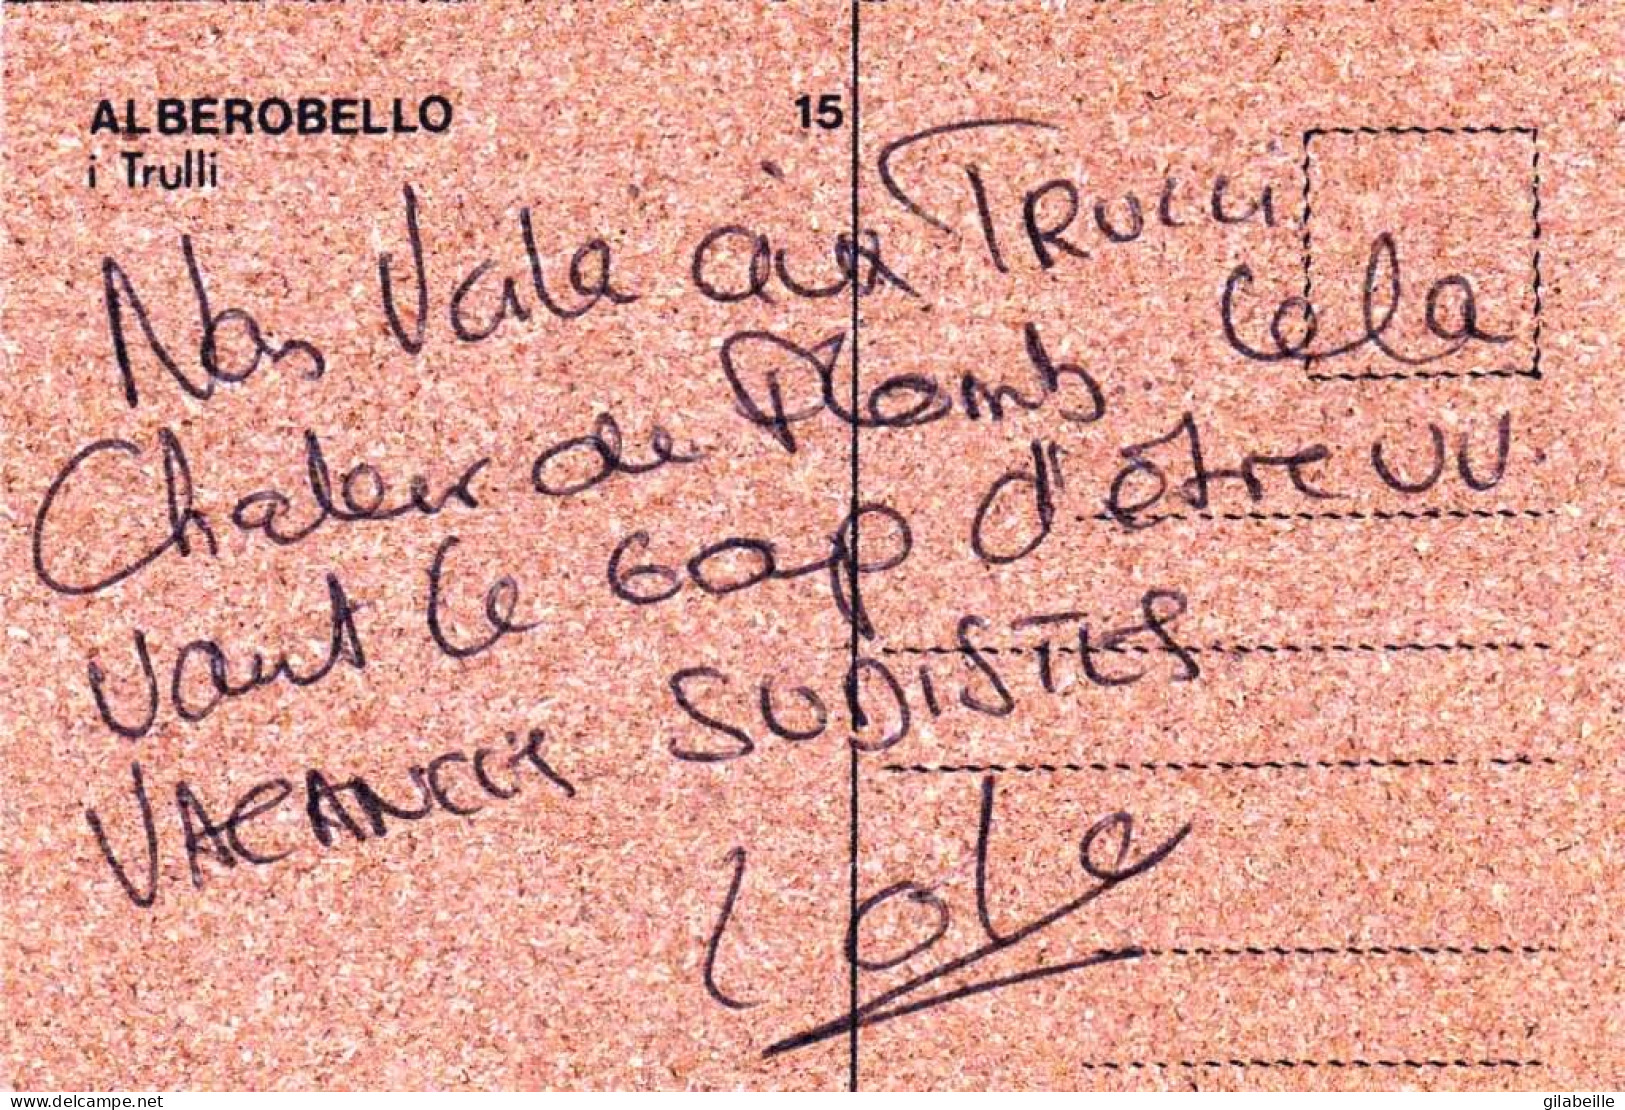 ALBEROBELLO 15
i Trulli
Nos Voila aux TRULLI
Chaleur de Plomb. Cela
vaut le coup d'être vu.
VACANCES SUDISTES
Lole
delcampe.net
gilabeille